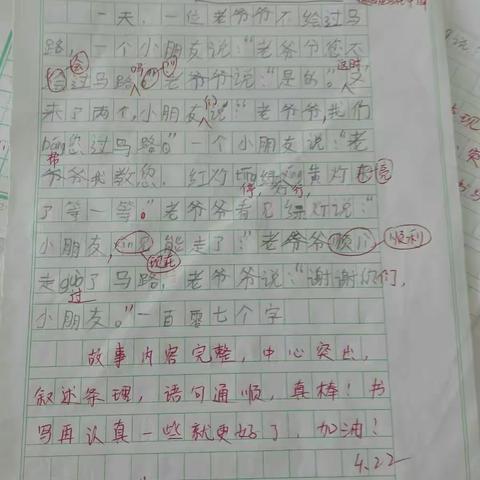 一天,一位老爷爷不绘过马
路,一个小朋友说:“老爷爷您不
会
会过马路吗?”老爷爷说:“是的。”又
这时
来了两个小朋友说:“老爷爷我们
们
bāng您过马路。”一个小朋友说:“老
帮
爷爷我教您,红灯tíng绿xíng黄灯
亮
停,
了等一等。”老爷爷看见绿灯说:“
小朋友,xiàn在能走了。”老爷爷顺利
顺利
现在
走guò了马路,老爷爷说:“谢谢你们,
过
小朋友。”一百零七个字
故事内容完整,中心突出,
叙述条理,语句通顺,真棒!书
写再认真一些就更好了,加油!
4.22